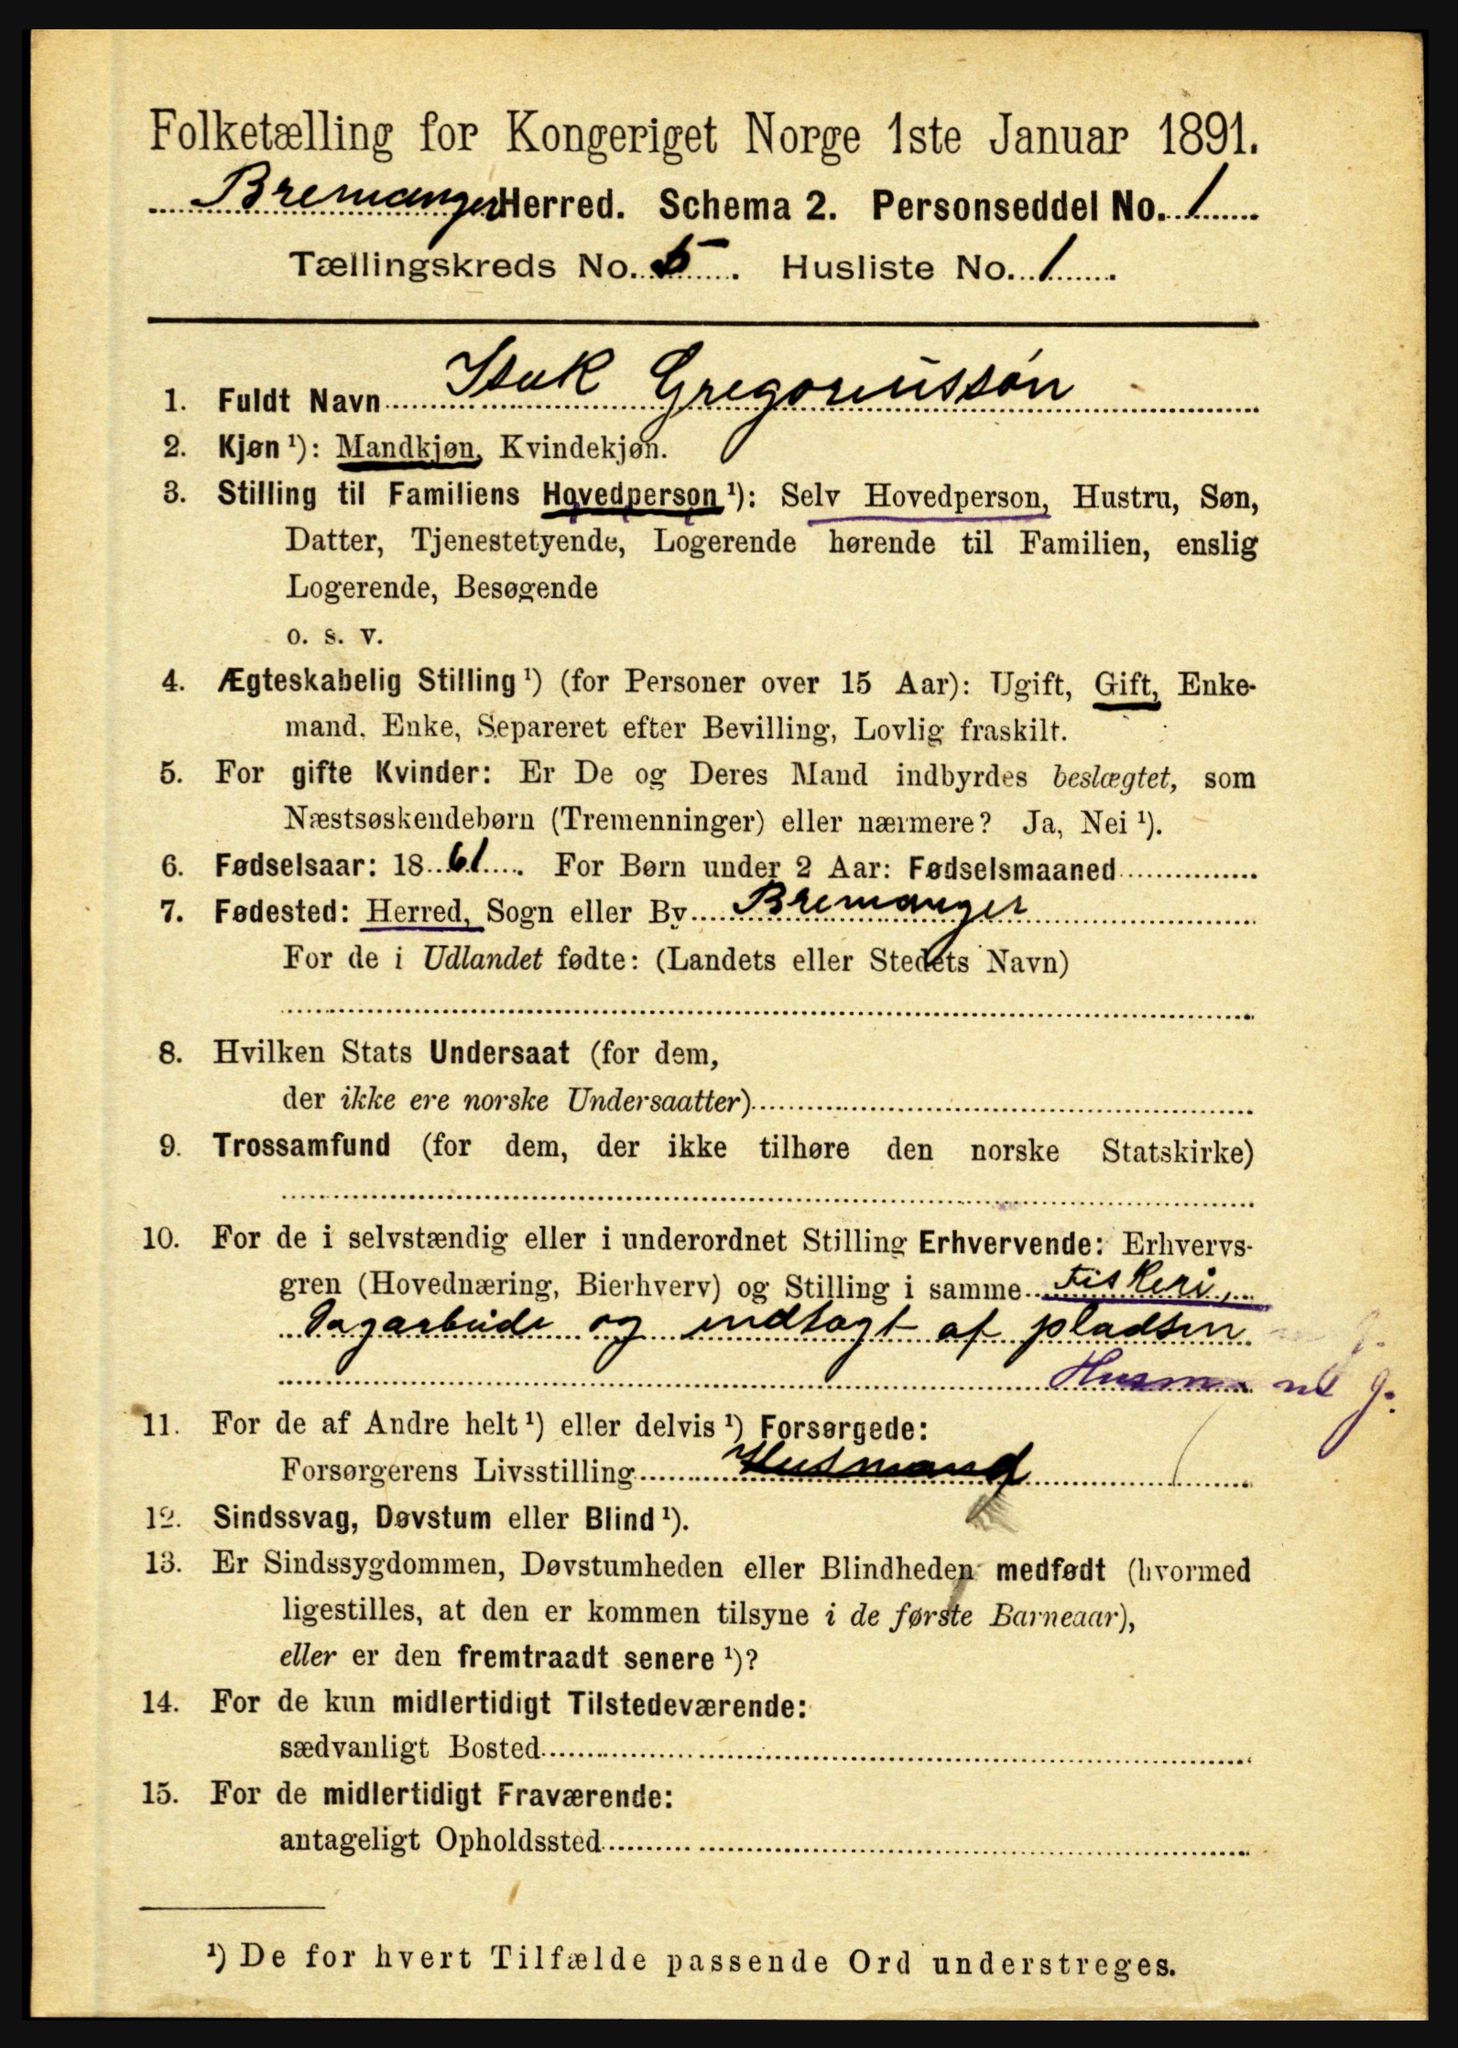 Folketælling for Kongeriget Norge 1ste Januar 1891.
Bremanger Herred. Schema 2. Personseddel No. 1
Tællingskreds No. 5. Husliste No. 1.
1. Fuldt Navn Isak Gregoriussøn
2. Kjøn ¹): Mandkjøn, Kvindekjøn.
3. Stilling til Familiens Hovedperson ¹): Selv Hovedperson, Hustru, Søn,
Datter, Tjenestetyende, Logerende hørende til Familien, enslig
Logerende, Besøgende
o. s. v.
4. Ægteskabelig Stilling ¹) (for Personer over 15 Aar): Ugift, Gift, Enke-
mand, Enke, Separeret efter Bevilling, Lovlig fraskilt.
5. For gifte Kvinder: Er De og Deres Mand indbyrdes beslægtet, som
Næstsøskendebørn (Tremenninger) eller nærmere? Ja, Nei ¹).
6. Fødselsaar: 1861. For Børn under 2 Aar: Fødselsmaaned
7. Fødested: Herred, Sogn eller By Bremanger
For de i Udlandet fødte: (Landets eller Stedets Navn)
8. Hvilken Stats Undersaat (for dem,
der ikke ere norske Undersaatter)
9. Trossamfund (for dem, der ikke tilhøre den norske Statskirke)
10. For de i selvstændig eller i underordnet Stilling Erhvervende: Erhvervs-
gren (Hovednæring, Bierhverv) og Stilling i samme Fiskeri,
Dagarbeide og indtægt af pladsen
Husm. m J.
11. For de af Andre helt ¹) eller delvis ¹) Forsørgede:
Forsørgerens Livsstilling Husmand
12. Sindssvag, Døvstum eller Blind ¹).
13. Er Sindssygdommen, Døvstumheden eller Blindheden medfødt (hvormed
ligestilles, at den er kommen tilsyne i de første Barneaar),
eller er den fremtraadt senere ¹)?
14. For de kun midlertidigt Tilstedeværende:
sædvanligt Bosted
15. For de midlertidigt Fraværende:
antageligt Opholdssted
¹) De for hvert Tilfælde passende Ord understreges.